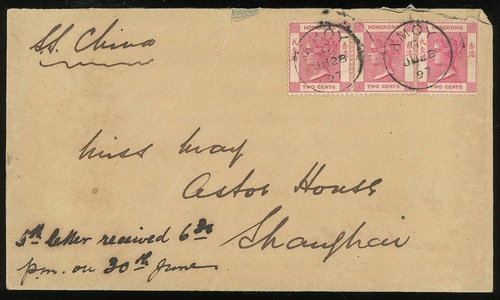 SS. China
HONGKONG HONGKONG HONGKONG
香港 香港 香港
TWO CENTS TWO CENTS TWO CENTS
AMOY
JU 28
97
AMOY
JU 28
97
Miss May
Astor House
Shanghai
5th letter received 6 30
p.m. on 30th June